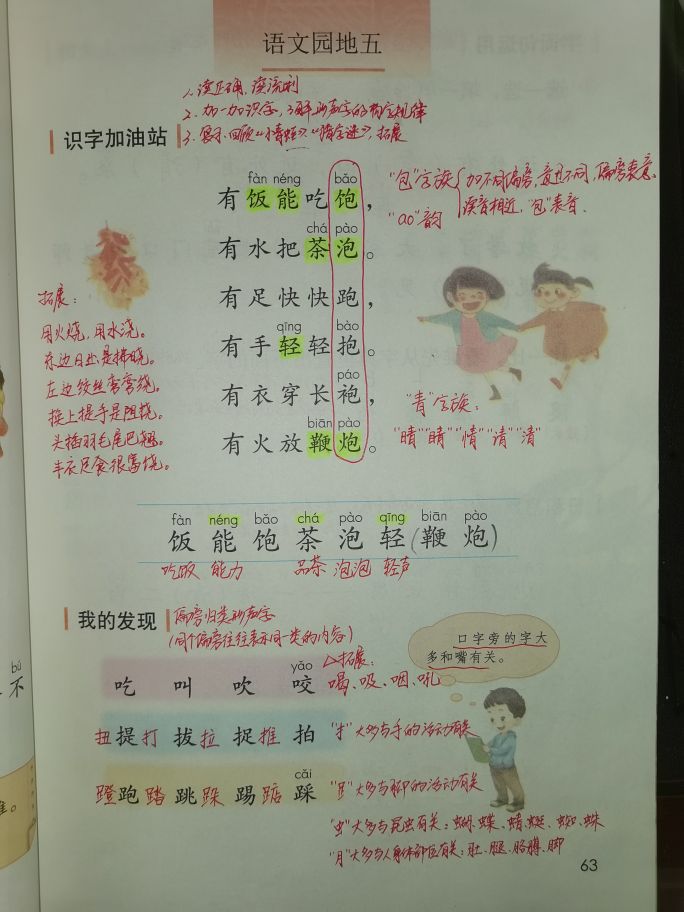 语文园地五
1、读正确、读流利
2、加一加识字，了解形声字的构字规律
识字加油站
3、展示、回顾《小青蛙》《猜字谜》，拓展
fàn néng bǎo
有饭能吃饱，
chá pào
有水把茶泡。
有足快快跑，
qīng bào
有手轻轻抱。
páo
有衣穿长袍，
biān pào
有火放鞭炮。
"包"字族
加不同偏旁，意思不同，偏旁表意
读音相近，"包"表音.
"ao"韵
拓展：
用火烧，用水浇。
东边日出是拂晓。
左边绞丝弯弯绕。
换上提手是阻挠。
头插羽毛尾巴翘。
丰衣足食很富饶。
"青"字族：
"晴""睛""情""请""清"
fàn néng bǎo chá pào qīng biān pào
饭能饱茶泡轻(鞭炮)
吃饭 能力 品茶 泡泡 轻声
我的发现
偏旁归类形声字
(同个偏旁往往表示同一类的内容)
口字旁的字大
多和嘴有关。
yǎo
吃 叫 吹 咬
△拓展：
喝、吸、咽、吼
扭提打 拔拉 捉推 拍
"扌"大多与手的活动有关
cǎi
蹬跑踏 跳跺 踢踮 踩
"𧾷"大多与脚的活动有关
"虫"大多与昆虫有关：蝴、蝶、蜻、蜓、蜘、蛛
"月"大多与人身体部位有关：肚、腿、胳膊、脚
63
bù
不